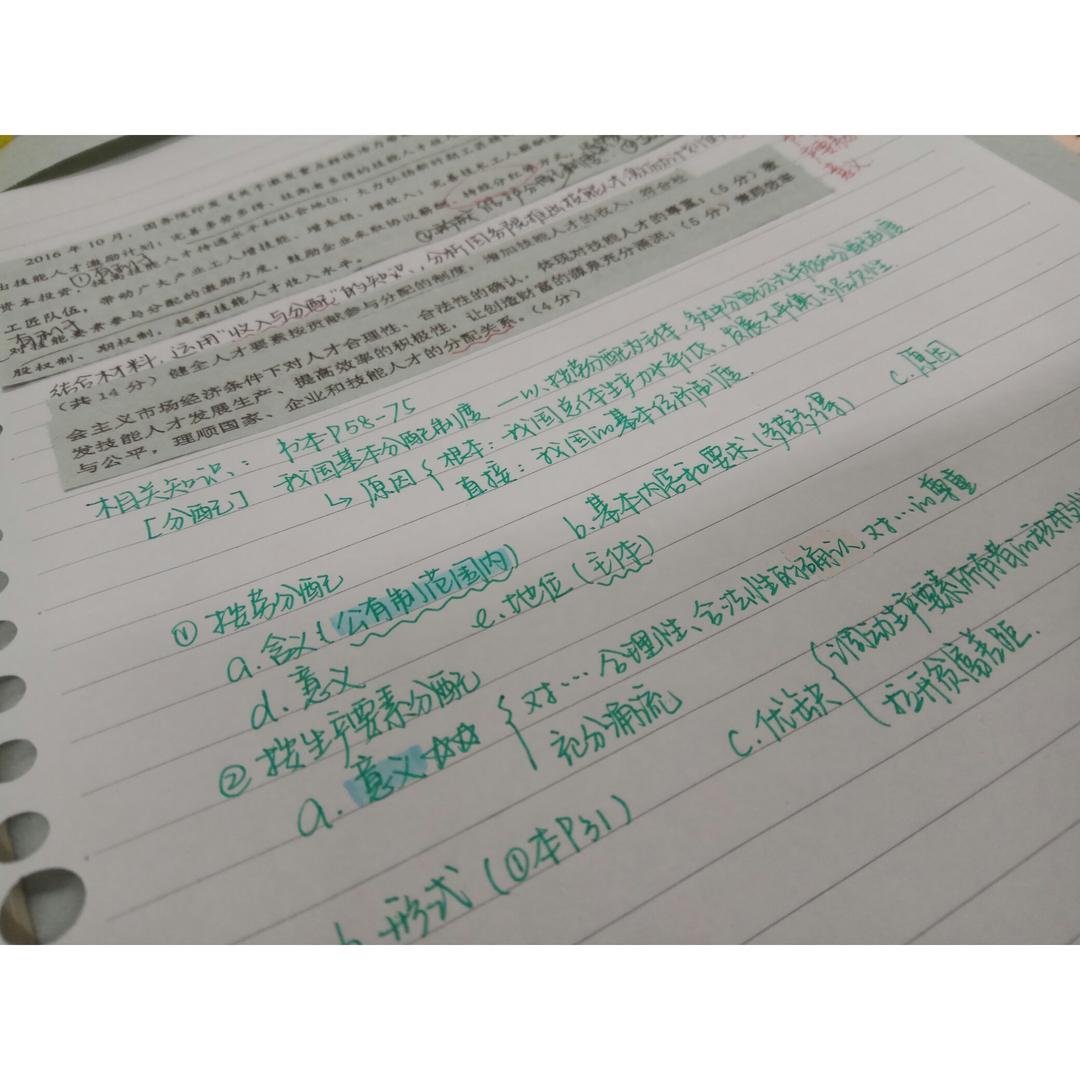 2016年10月，国务院印发《关于激发重点群体活力带
出技能人才激励计划：完善多劳多得、技高者多得的技能人才收
资本投资，提高技能人才待遇水平和社会地位，大力弘扬新时期工匠精
工匠队伍，带动广大产业工人增技能、增本领、增收入；完善技术工人薪酬
对技能要素参与分配的激励力度，鼓励企业采取协议薪酬、持股分红等方式，
股权制、期权制，提高技能人才收入水平。
结合材料，运用"收入与分配"的知识，分析国务院推出技能人才激励计划
（共14分）健全人才要素按贡献参与分配的制度，增加技能人才的收入，符合社
会主义市场经济条件下对人才合理性、合法性的确认，体现对技能人才的尊重；（5分）激
发技能人才发展生产、提高效率的积极性，让创造财富的源泉充分涌流；（5分）兼顾效率
与公平，理顺国家、企业和技能人才的分配关系。（4分）
相关知识：书本P58-75
[分配] 我国基本分配制度 —以按劳分配为主体，多种分配方式并存的分配制度
↳原因 { 根本：我国总体生产力水平低、发展不平衡、多层次性
直接：我国的基本经济制度.
① 按劳分配
a.含义(公有制范围内) b.基本内容和要求(多劳多得) c.原因
d.意义 e.地位(主体)
② 按生产要素分配
a.意义☆☆ { 对…合理性、合法性的确认，对…的尊重
充分涌流
c.优缺 { 调动生产要素所有者的积极性
拉开贫富差距.
b.形式(①本P31)